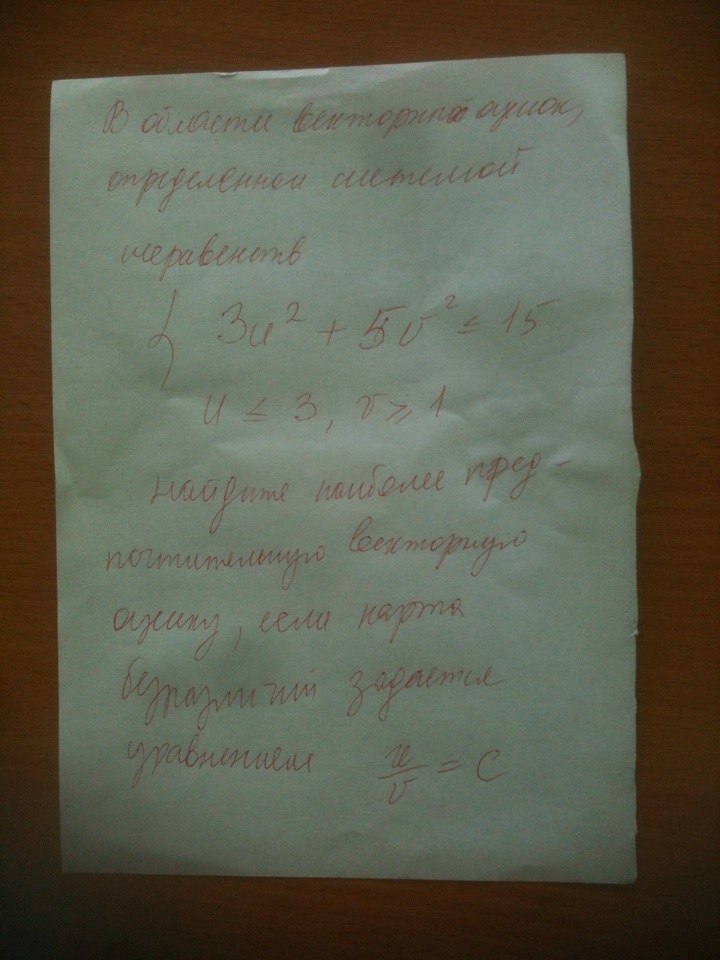 В области векторных оценок,
определенной системой
неравенств
{ 3u² + 5v² ≤ 15
u ≤ 3, v ≥ 1
найдите наиболее пред-
почтительную векторную
оценку, если карта
безразличий задается
уравнением u/v = C